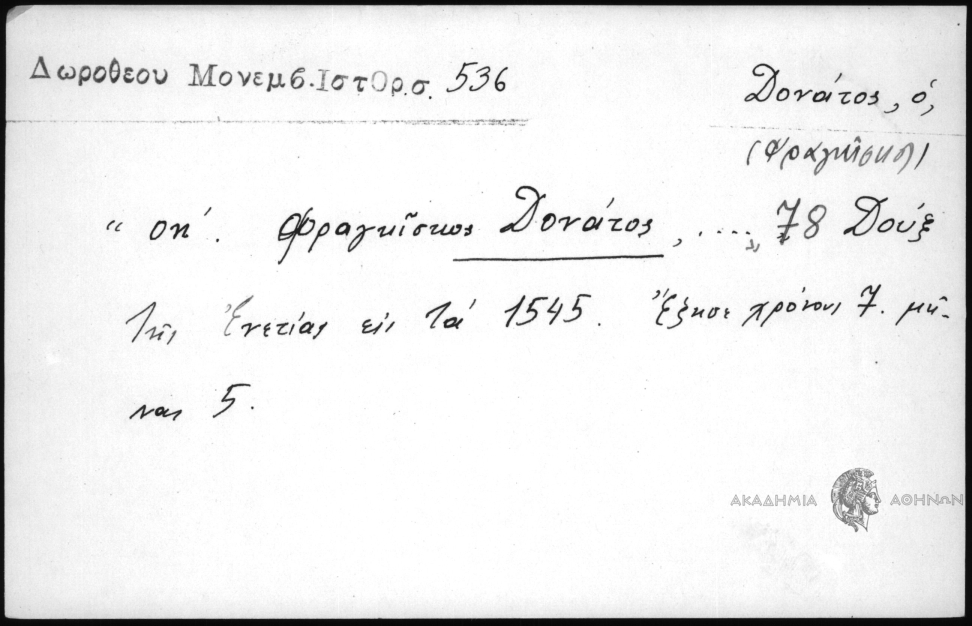 Δωροθεου Μονεμβ.Ιστορ.σ. 536
Δονάτος, ὁ,
(Φραγκῖσκος)
“ οη΄. Φραγκῖσκος Δονάτος, ..... 78 Δούξ
τῆς Ἐνετίας εις τά 1545. Ἔζησε χρόνους 7. μῆ-
νας 5.
ΑΚΑΔΗΜΙΑ ΑΘΗΝΩΝ